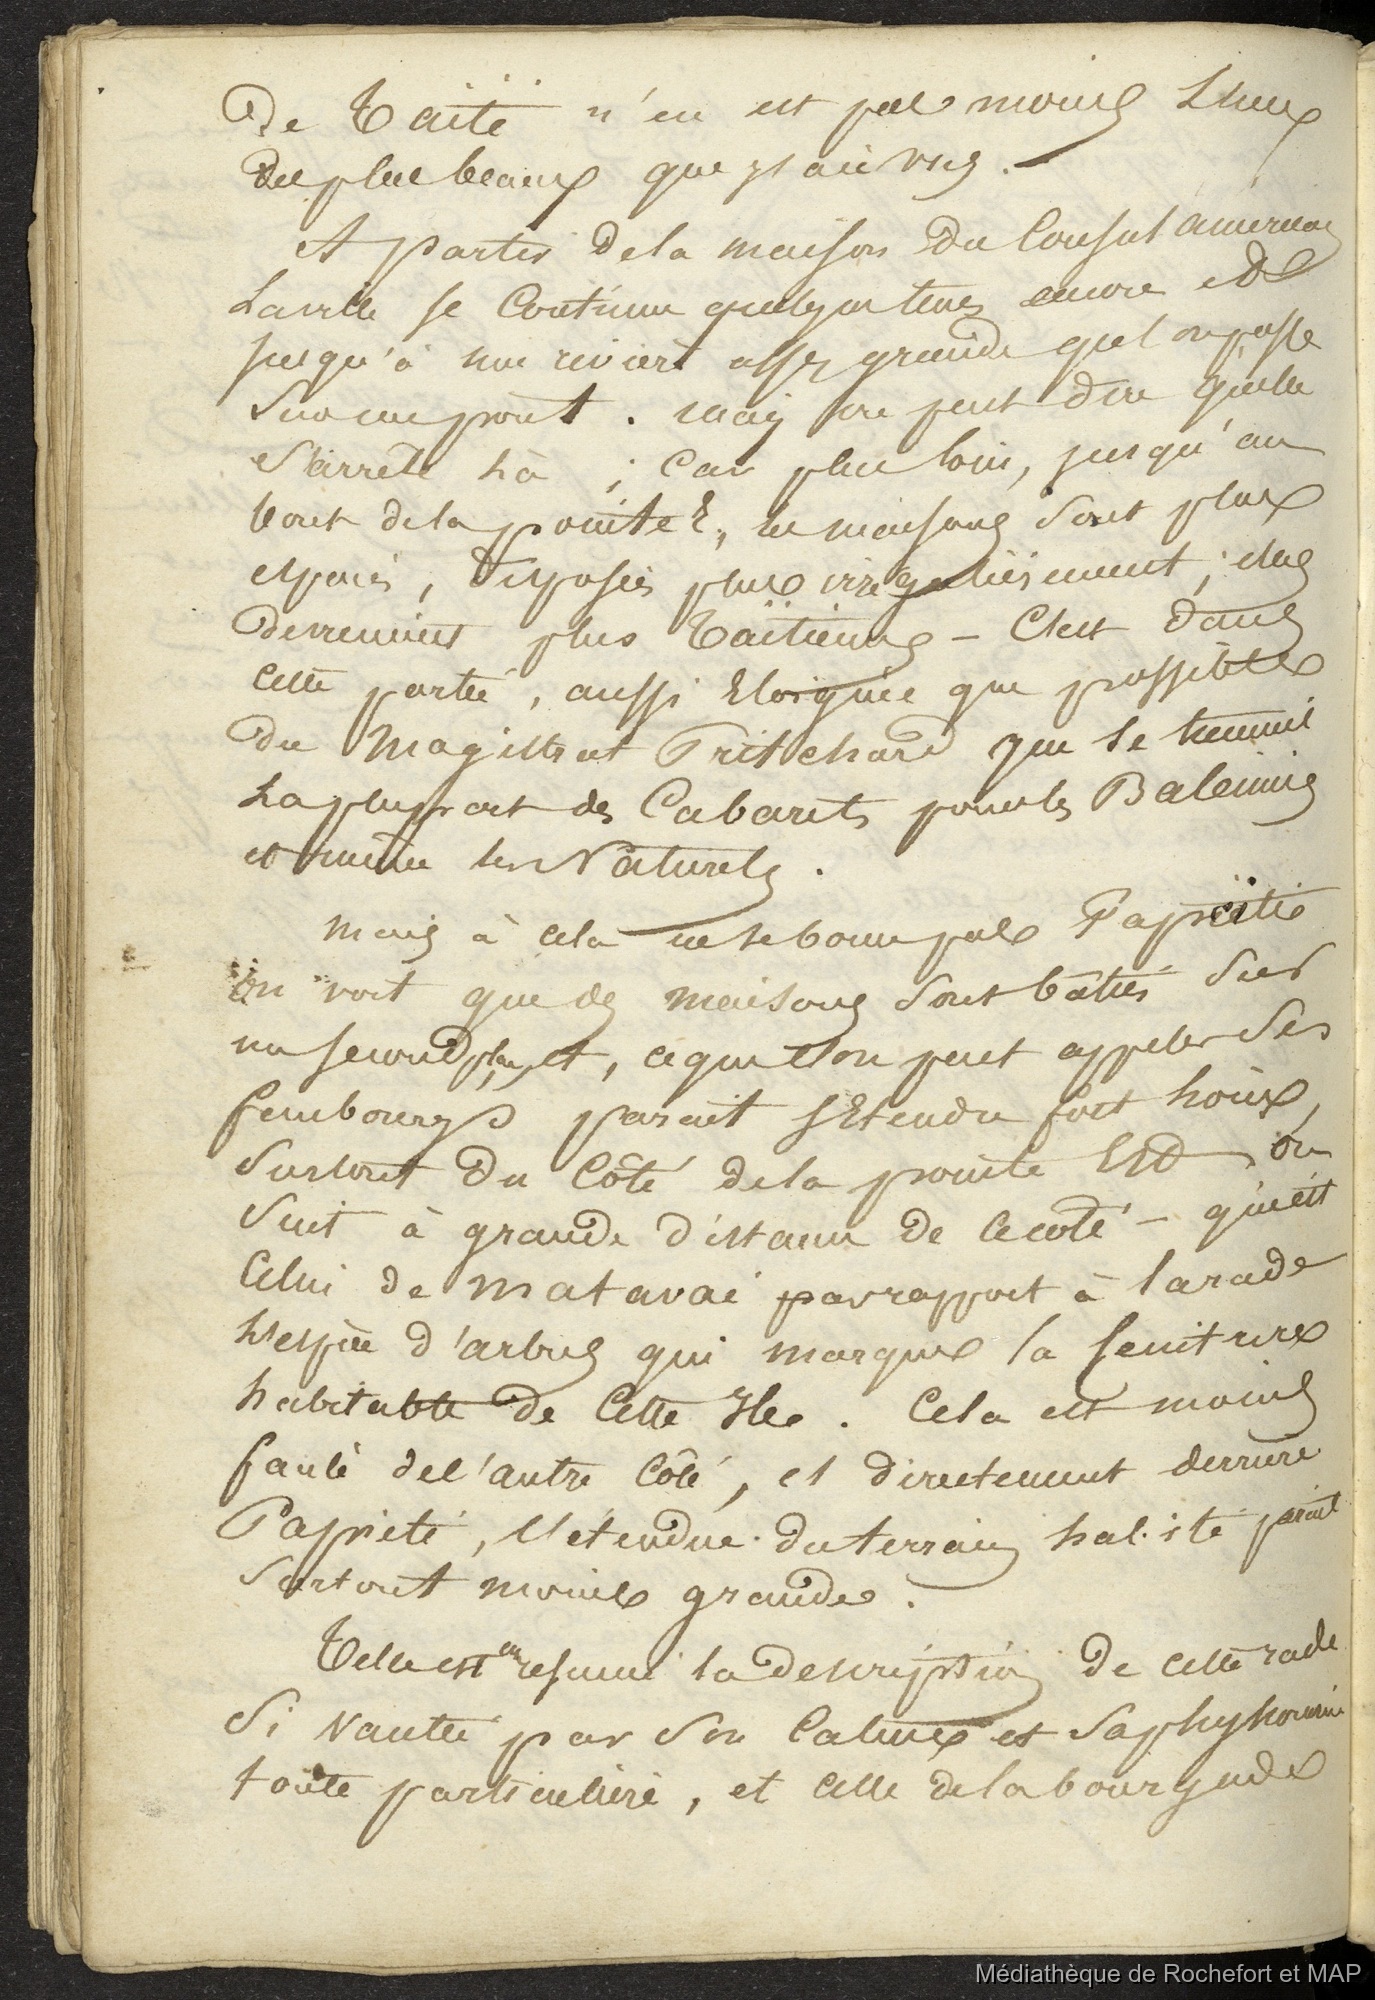 De Taïti n'en est pas moins l'un
des plus beaux que j'ai vus.
A partir de la maison du Consul américain
la ville se continue quelque tems encore et
jusqu'à une rivière assez grande que l'on passe
sur un pont. mais on peut dire qu'elle
s'arrête là ; car plus loin, jusqu'au
bout de la pointe E, les maisons sont plus
espacées, disposées plus irrégulièrement ; elles
deviennent plus Taïtiennes — C'est dans
cette partie, aussi Eloignée que possible
du Magistrat Pritchard que se tiennent
la plupart des Cabarets pour les Baleiniers
et même les Naturels.
mais à cela ne se borne pas Papéïti
on voit que des maisons sont bâties sur
un second plan et, ce que l'on peut appeler ses
faubourgs parait s'Etendre fort loin,
surtout du Côté de la pointe Est, on
suit à grande distance de ce coté — qui est
Celui de Matavaï par rapport à la rade
l'espèce d'arbres qui marque la ceinture
habitable de Cette Ile. Cela est moins
de l'autre Côté, et directement derrière
Papeïté, l'étendue du terrain habité parait
surtout moins grande.
Telle est en résumé la description de cette rade
si vantée par son Calme et sa physionomie
toute particulière, et celle de la bourgade